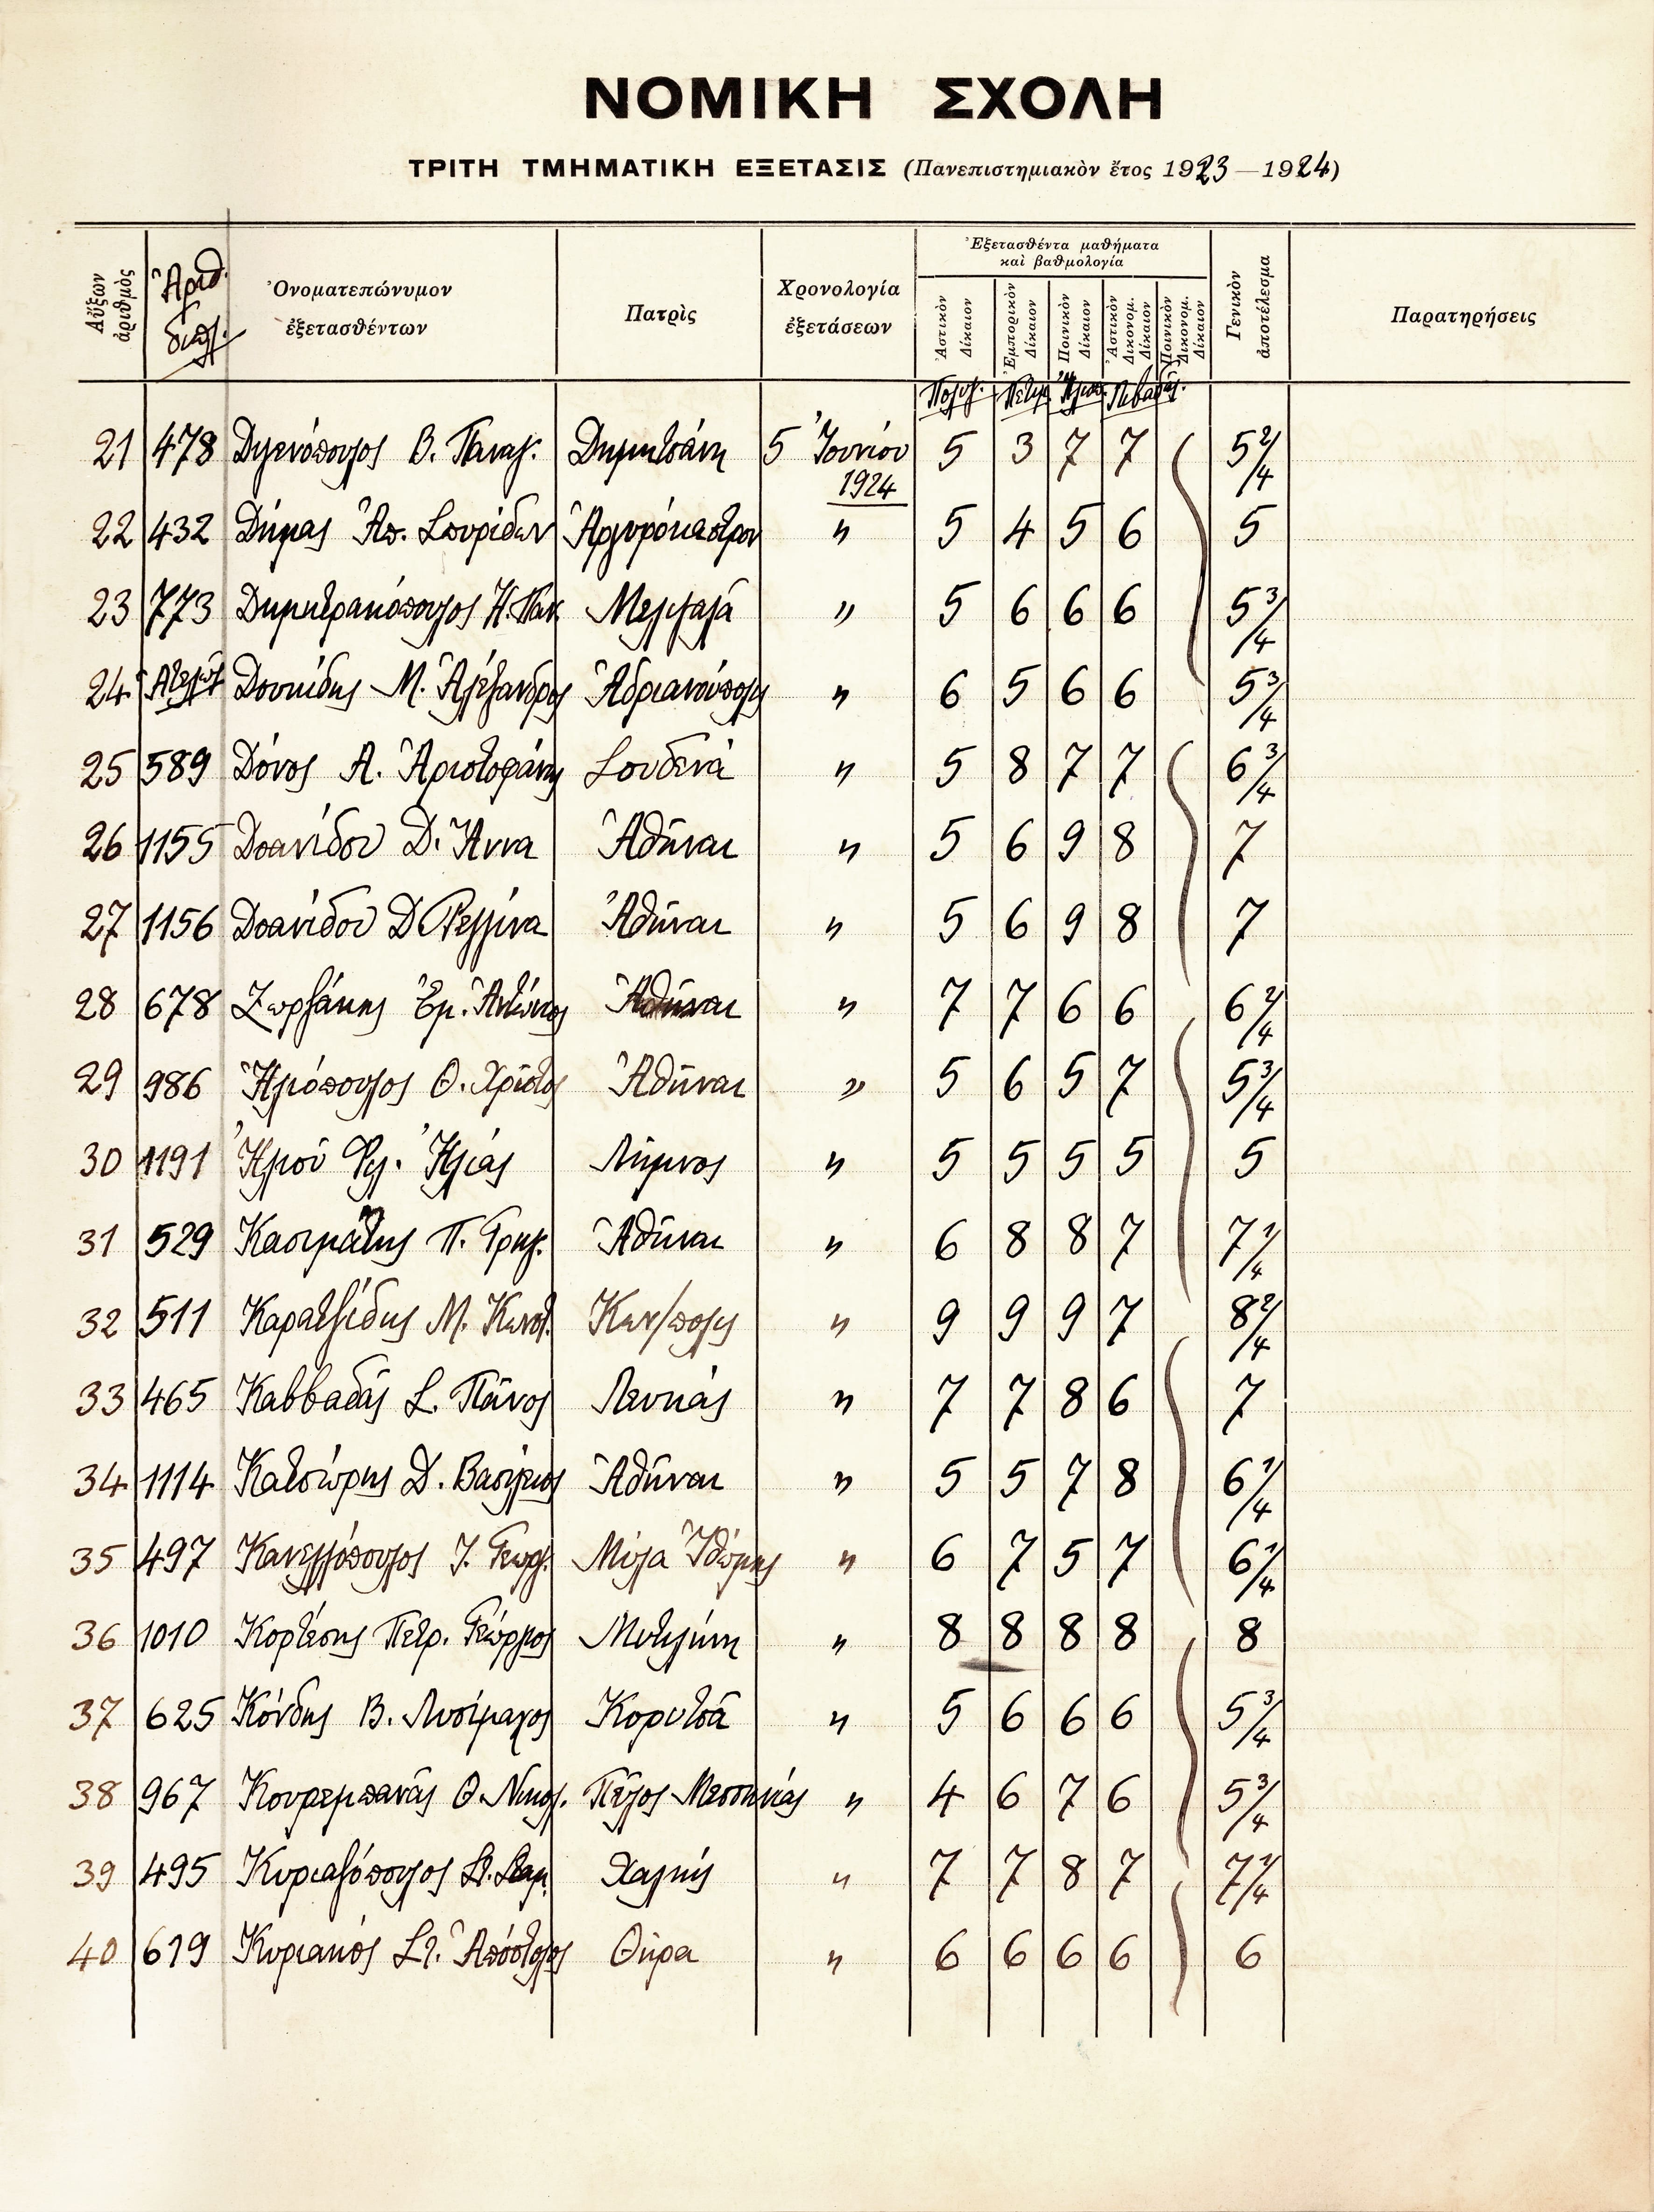 ΝΟΜΙΚΗ ΣΧΟΛΗ
ΤΡΙΤΗ ΤΜΗΜΑΤΙΚΗ ΕΞΕΤΑΣΙΣ (Πανεπιστημιακὸν ἔτος 1923—1924)
Αὔξων ἀριθμὸς Ἀριθ. Ὀνοματεπώνυμον ἐξετασθέντων Πατρὶς Χρονολογία ἐξετάσεων Ἐξετασθέντα μαθήματα καὶ βαθμολογία Γενικὸν ἀποτέλεσμα Παρατηρήσεις
Ἀστικὸν Δίκαιον Ἐμπορικὸν Δίκαιον Ποινικὸν Δίκαιον Ἀστικὸν Δικονομ. Δίκαιον Ποινικὸν Δικονομ. Δίκαιον
21 478 Β. Παναγ. Δημητσάνη 5 Ἰουνίου 1924 5 3 7 7 5 2/4
22 432 Δήμας Ἀπ. Σπυρίδων Ἀργυρόκαστρον " 5 4 5 6 5
23 773 Δημητρακόπουλος Η. Παν. Μελιγαλᾶ " 5 6 6 6 5 3/4
24 Ἀτελῶς Δουκίδης Μ. Ἀλέξανδρος Ἀδριανούπολις " 6 5 6 6 5 3/4
25 589 Δόνος Α. Ἀριστοφάνης Σουδενά " 5 8 7 7 6 3/4
26 1155 Δοανίδου Δ. Ἄννα Ἀθῆναι " 5 6 9 8 7
27 1156 Δοανίδου Δ Ρεγγίνα Ἀθῆναι " 5 6 9 8 7
28 678 Ζωρζάκης Ἐμ. Ἀντώνιος Ἀθῆναι " 7 7 6 6 6 2/4
29 986 Ἡλιόπουλος Θ. Χρίστος Ἀθῆναι " 5 6 5 7 5 3/4
30 1191 Ἠλιοῦ Φιλ. Ἠλίας Λῆμνος " 5 5 5 5 5
31 529 Κασιμάτης Π. Γρηγ. Ἀθῆναι " 6 8 8 7 7 1/4
32 511 Καρατζίδης Μ. Κωνστ. Κων/πολις " 9 9 9 7 8 2/4
33 465 Καββαδᾶς Σ. Πᾶνος Λευκάς " 7 7 8 6 7
34 1114 Κατσώρης Δ. Βασίλειος Ἀθῆναι " 5 5 7 8 6 1/4
35 497 Κανελλόπουλος Ι. Γεωργ. Μίλα Ἰθώμης " 6 7 5 7 6 1/4
36 1010 Κορτέσης Πετρ. Γεώργιος Μυτιλήνη " 8 8 8 8 8
37 625 Κόνδης Β. Λυσίμαχος Κορυτσᾶ " 5 6 6 6 5 3/4
38 967 Κουρεμπανᾶς Θ. Νικολ. Πῦλος Μεσσηνίας " 4 6 7 6 5 3/4
39 495 Κυριαζόπουλος Στ. Σταμ. Χαλκίς " 7 7 8 7 7 1/4
40 619 Κυριακός Στ. Ἀπόστολος Θήρα " 6 6 6 6 6